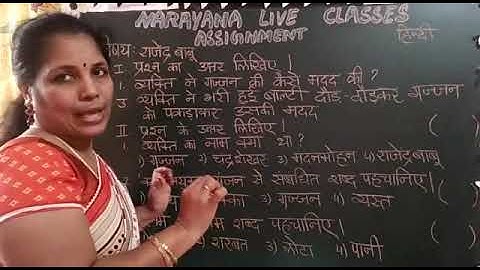 NARAYANA LIVE CLASSES
ASSIGNMENT हिन्दी
राजेंद्र बाबू
I प्रश्न का उत्तर लिखिए।
1. व्यक्ति ने गज्जन की कैसे मदद की?
उ व्यक्ति ने भरी हुई बाल्टी दौड़-दौड़कर गज्जन
को पकड़ाकर उसकी मदद
II प्रश्न के उत्तर लिखिए। ( )
1. व्यक्ति का नाम क्या था?
1) गज्जन 2) चंद्रशेखर 3) मदनमोहन 4) राजेंद्र बाबू
से संबंधित शब्द पहचानिए। ( )
3) गज्जन 4) व्यस्त
शब्द पहचानिए। ( )
2) शरबत 3) लोटा 4) पानी